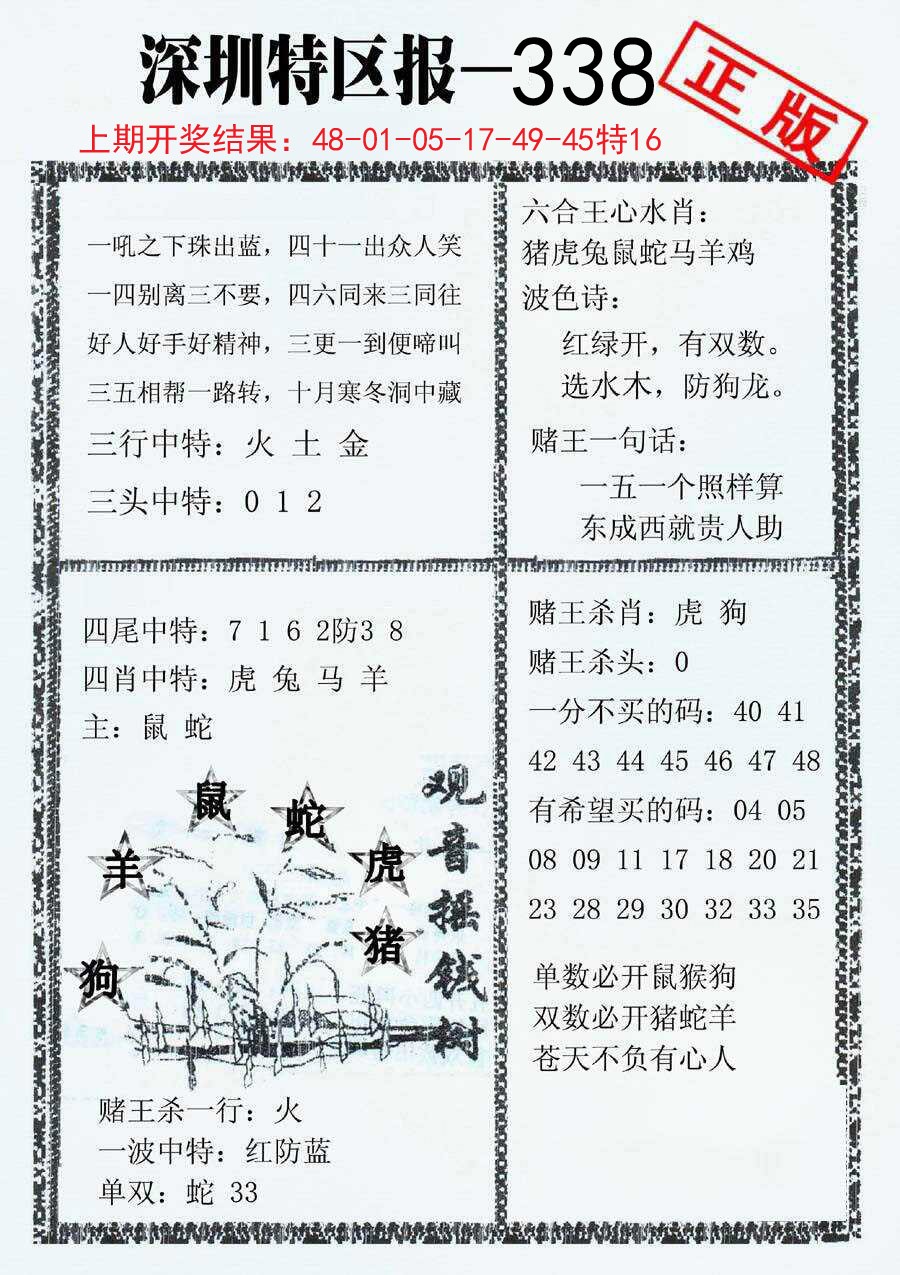 深圳特区报—338
正版
上期开奖结果：48-01-05-17-49-45特16
一吼之下珠出蓝，四十一出众人笑
一四别离三不要，四六同来三同往
好人好手好精神，三更一到便啼叫
三五相帮一路转，十月寒冬洞中藏
三行中特：火 土 金
三头中特：0 1 2
六合王心水肖：
猪虎兔鼠蛇马羊鸡
波色诗：
红绿开，有双数。
选水木，防狗龙。
赌王一句话：
一五一个照样算
东成西就贵人助
四尾中特：7 1 6 2防3 8
四肖中特：虎 兔 马 羊
主：鼠 蛇
鼠
蛇
羊
虎
猪
狗
观音摇钱树
赌王杀一行：火
一波中特：红防蓝
单双：蛇 33
赌王杀肖：虎 狗
赌王杀头：0
一分不买的码：40 41
42 43 44 45 46 47 48
有希望买的码：04 05
08 09 11 17 18 20 21
23 28 29 30 32 33 35
单数必开鼠猴狗
双数必开猪蛇羊
苍天不负有心人